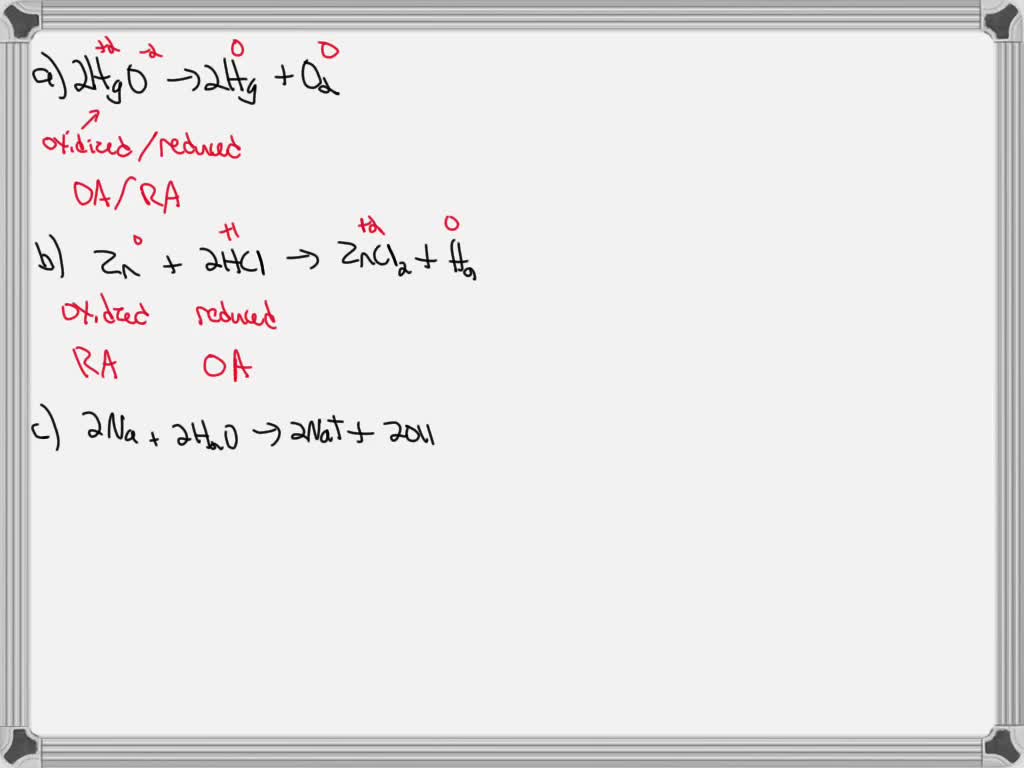 +2 -2 0 0
a) 2HgO → 2Hg + O2
oxidized / reduced
OA / RA
0 +1 +2 0
b) Zn + 2HCl → ZnCl2 + H2
oxidized reduced
RA OA
c) 2Na + 2H2O → 2Na+ + 2OH